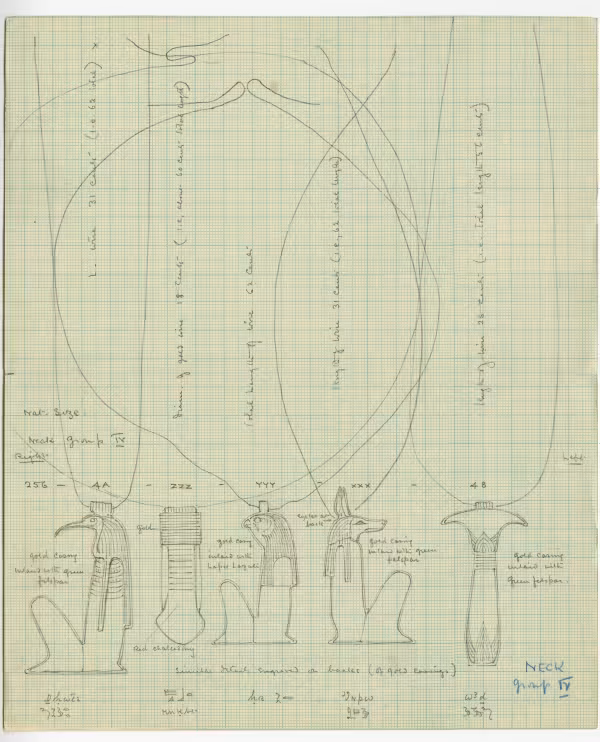 L. wire 31 Centi (i.e. 62 total) x
Diam. of gold wire 28 Centi (i.e. circa 60 centi total length)
Total length of wire 62 Centi
length of wire 31 Centi (i.e. 62 total length)
length of wire 28 Centi (i.e. total length 56 centi)
Nat. Size.
Neck Group IV
Right. Left
256 - 4A - ZZZ - YYY - XXX - 4B
gold Casing inlaid with green felspar
gold
red chalcedony
gold casing inlaid with Lapis Lazuli
gold Casing inlaid with green felspar
gold Casing inlaid with green felspar.
Similar details engraved on backs (of gold casings)
NECK
group IV